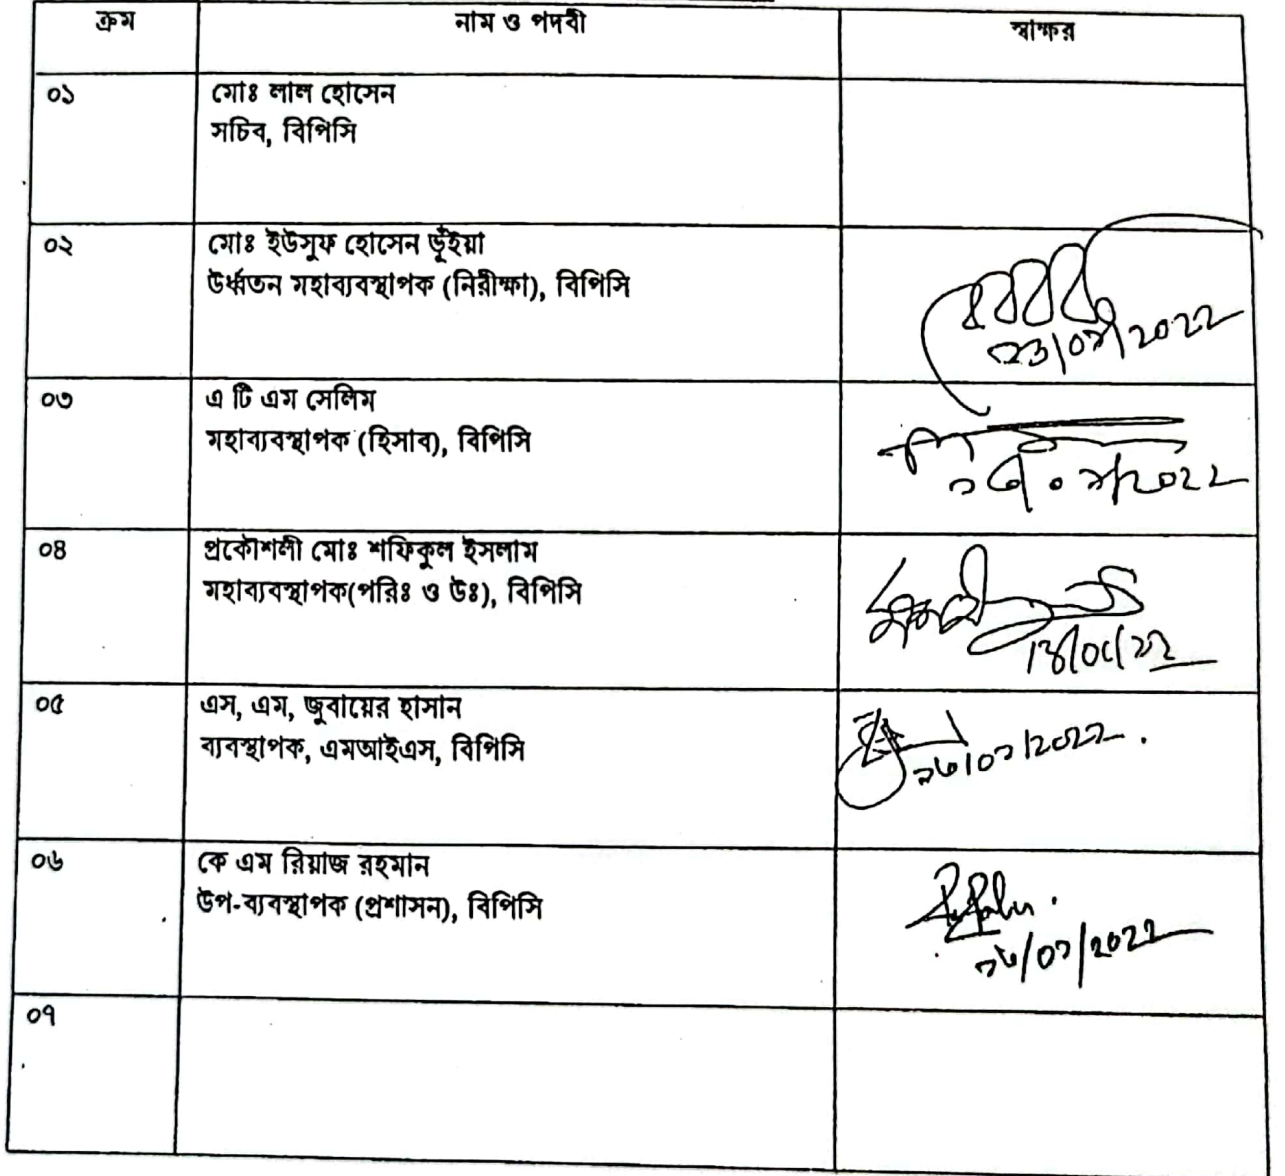 ক্রম নাম ও পদবী স্বাক্ষর
০১ মোঃ লাল হোসেন
সচিব, বিপিসি
০২ মোঃ ইউসুফ হোসেন ভূঁইয়া
উর্ধ্বতন মহাব্যবস্থাপক (নিরীক্ষা), বিপিসি
০৩ এ টি এম সেলিম
মহাব্যবস্থাপক (হিসাব), বিপিসি
০৪ প্রকৌশলী মোঃ শফিকুল ইসলাম
মহাব্যবস্থাপক(পরিঃ ও উঃ), বিপিসি
০৫ এস, এম, জুবায়ের হাসান
ব্যবস্থাপক, এমআইএস, বিপিসি
০৬ কে এম রিয়াজ রহমান
উপ-ব্যবস্থাপক (প্রশাসন), বিপিসি
০৭